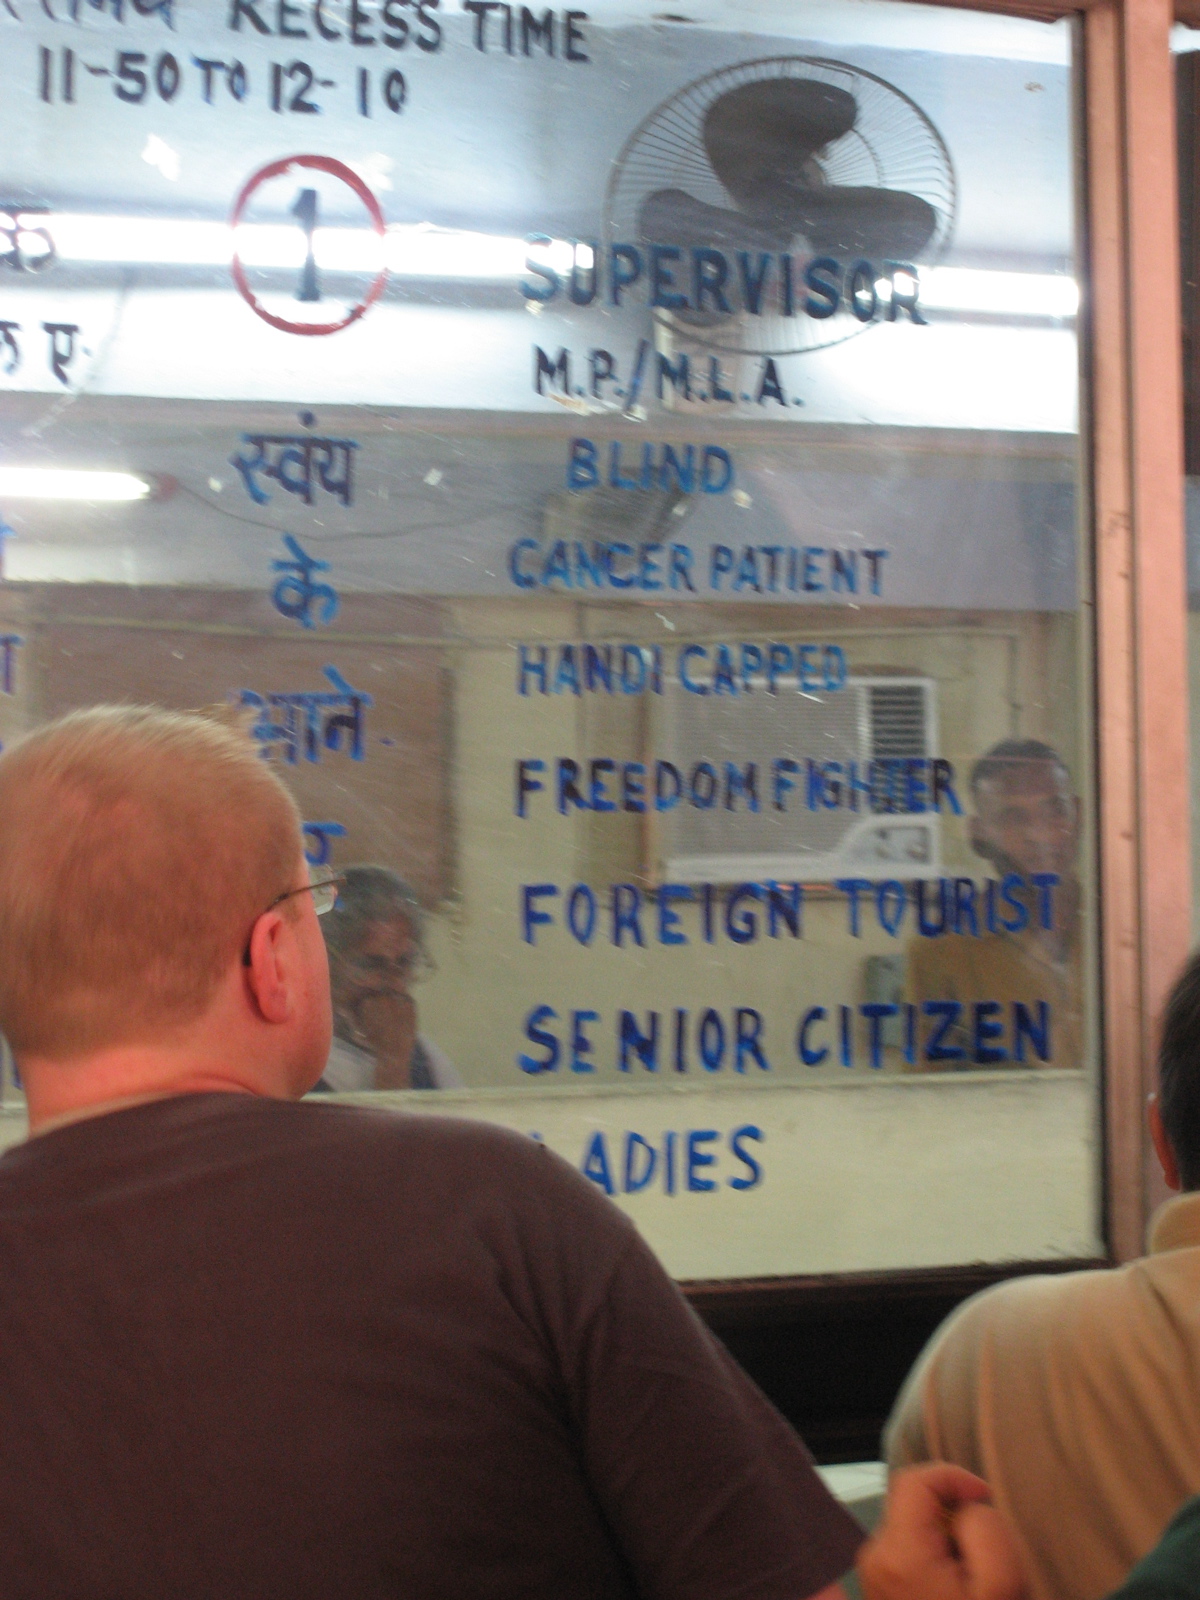 RECESS TIME
11-50 TO 12-10
1
SUPERVISOR
M.P./M.L.A.
ए.
स्वंय
BLIND
के
CANCER PATIENT
HANDICAPPED
आने
FREEDOM FIGHTER
FOREIGN TOURIST
SENIOR CITIZEN
LADIES